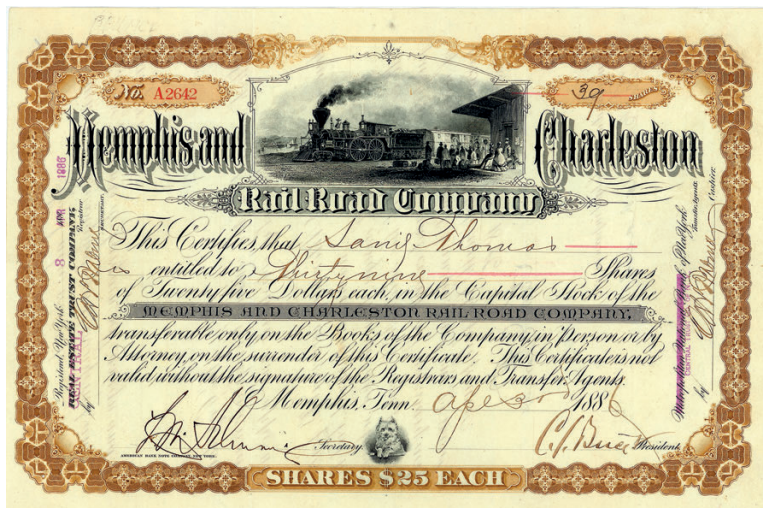 No. A2642
39 SHARES
Memphis and Charleston
Rail Road Company
This Certifies, that Thomas
is entitled to Thirty nine Shares
of Twenty five Dollars each, in the Capital Stock of the
MEMPHIS AND CHARLESTON RAIL ROAD COMPANY,
transferable only on the Books of the Company, in Person or by
Attorney, on the surrender of this Certificate. This Certificate is not
valid without the signature of the Registrars and Transfer Agents.
Memphis, Tenn. Apl 3rd 1886
Secretary. President.
AMERICAN BANK NOTE COMPANY, NEW YORK.
SHARES $25 EACH
Registered, New York
REAL ESTATE TRUST COMPANY,
by
Registrar
8 APR 1886
of New York
Transfer Agents
by
Cashier